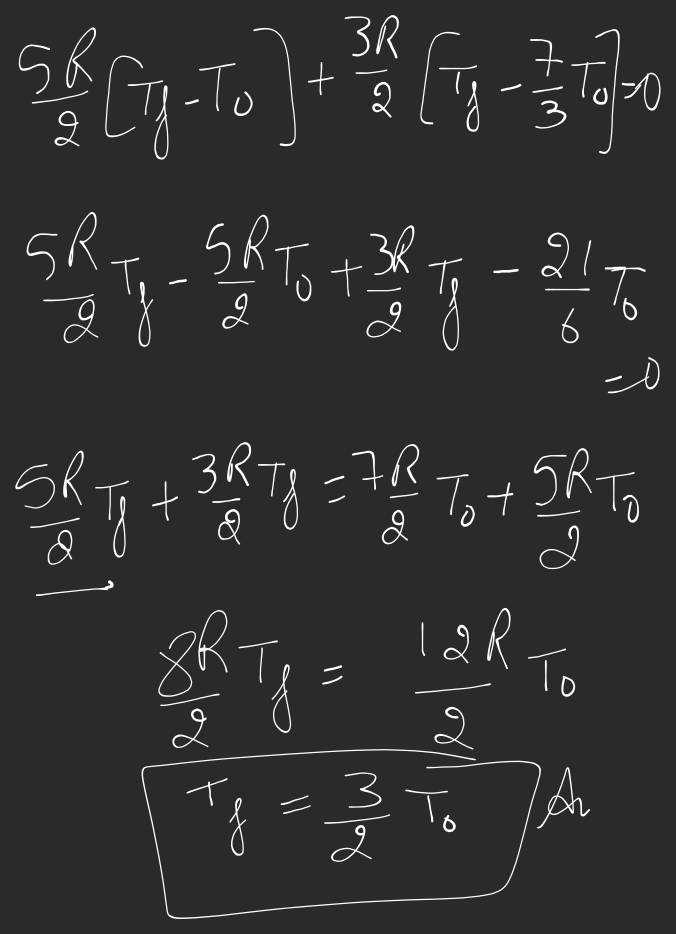 5R/2 [Tf - T0] + 3R/2 [Tf - 7/3 T0] = 0
5R/2 Tf - 5R/2 T0 + 3R/2 Tf - 21/6 T0
= 0
5R/2 Tf + 3R/2 Tf = 7R/2 T0 + 5R/2 T0
8R/2 Tf = 12R/2 T0
Tf = 3/2 T0